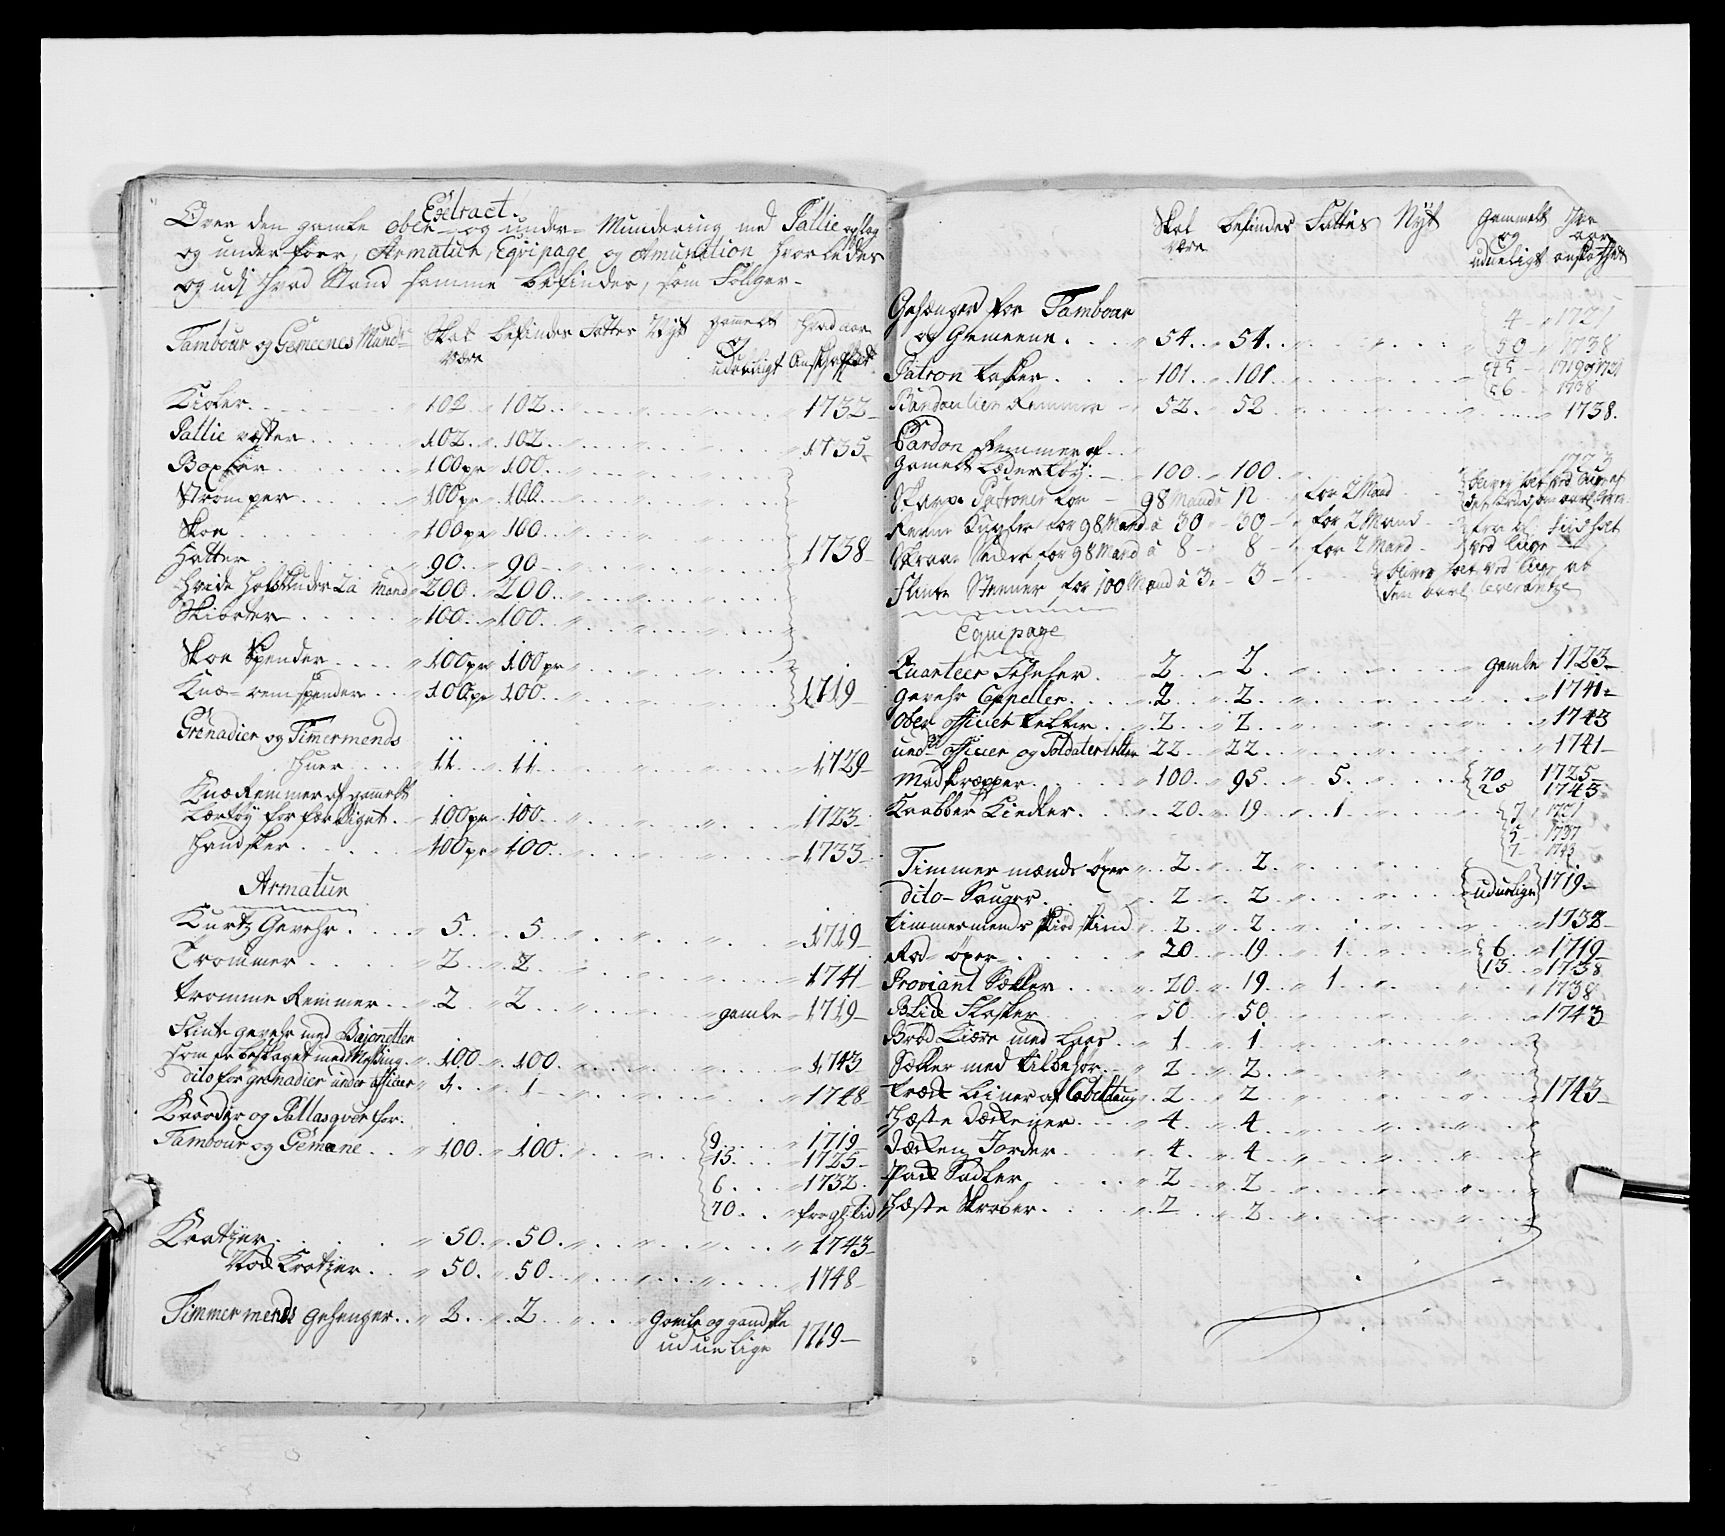 Extract.
Over den gamle ober- og under- Mundering med Pallie opslag
og under foer, Armatur, Equipage, og Amunition hvorledes
og udi hvad Stand samme befindes, som Følger-
Tambour og Gemeenes Mund: Skal være befindes Fattes Nyt gammelt og udueligt Hvad aar Anskaffet
Kioler 102 102 1732
Pallie vester 102 102 1735
Boxser 100 pr 100
Strømper 100 pr 100
Skoe 100 pr 100
Hatter 90 90 1738
Hvide Halskluder 2 à Mand 200 200
Skiorter 100 100
Skoe Spender 100 pr 100 pr
Knæ-rem spender 100 pr 100 1719
Grenadier og Timermends
Huer 11 11 1729
Knæ Remmer af gammelt
Lærtøy forfærdiget 100 pr 100 1723
Handsker 100 pr 100 1733
Armatur
Kurtz Gevehr 5 5 1719
Trommer 2 2 1741
tromme Remmer 2 2 gamle 1719
Flinte gevehr med Bajonetter
som er beslaget med Messing 100 100 1743
dito for grenadier under officer 1 1 1748
Kaarder og Pallasquer for
Tambour og Gemeene 100 100 9 1719
15 1725
6 1732
70 fra gl: tid
Kratzer 50 50 1743
Rød Kratzer 50 50 1748
Timmermends gehenger 2 2 Gamle og gandske
uduelige 1719
Skal være befindes Fattes Nyt gammelt og udueligt Hvad aar anskaffet
Gehenger for Tambour 4 1721
og Gemeene 54 54 50 1738
Patron tasker 101 101 45 1719 og 1721
56 1738
Bandoulier Remmer 52 52 1738
Pardon Remmer af
gamelt Lædertøy 100 100
Skarpe Patroner for 98 Mand à 12 for 2 Mand
Reene Kugler for 98 Mand à 30 30 for 2 Mand
Skraae for 98 Mand à 8 8 for 2 Mand
Flinte Steener for 100 Mand à 3 3
Equipage
Quarteer 2 2 gamle 1723
gevehr Cappeller 2 2 1741
Ober officer telter 2 2 1743
und: officer og Soldater telter 22 22 1741
Madskrapper 100 95 5 70 1725
25 1743
Knabber Kiedler 20 19 1 7 1721
5 1737
7 1743
Timmer mænds øxer 2 2
dito Sauger 2 2 uduelige 1719
timmermends skiødskind 2 2 1738
Rød øxer 20 19 1 6 1719
13 1738
Proviant Sækker 20 19 1 1738
Blik Flasker 50 50 1743
Brød Kiære med Laas 1 1
Sækker med tilbehør 2 2
træk Liiner af Cabeltaug 2 2 1743
Hæste Dækkener 4 4
Dækken Jorder 4 4
Pak Sadler 2 2
Hæste Skraber 2 2